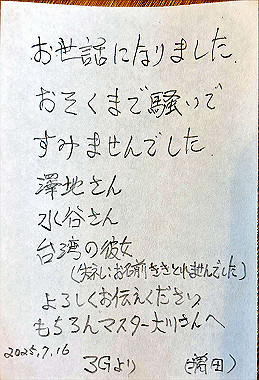 お世話になりました.
おそくまで騒いで
すみませんでした.
澤地さん
水谷さん
台湾の彼女
(失礼しお名前ききとれませんでした)
よろしくお伝えください
もちろんマスター大川さんへ
2025.7.16
3Gより